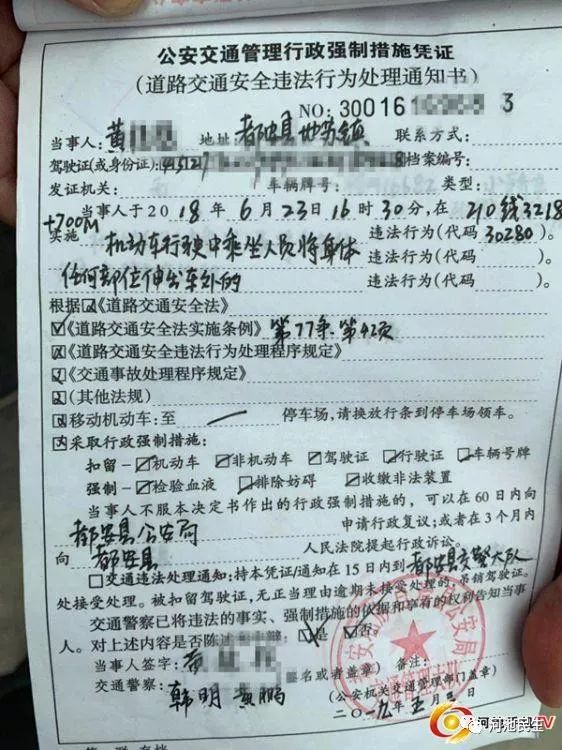 公安交通管理行政强制措施凭证
(道路交通安全违法行为处理通知书)
NO: 30016 3
当事人: 黄 地址: 都安县地苏镇 联系方式:
驾驶证(或身份证): 档案编号:
发证机关: 车辆牌号: 类型:
当事人于2018年6月23日16时30分,在210线3218
+700M
实施机动车行驶中乘坐人员将身体 违法行为(代码30280)。
任何部位伸出车外的 违法行为(代码 )。
违法行为(代码 )。
根据《道路交通安全法》
《道路交通安全法实施条例》第77条第4项
《道路交通安全违法行为处理程序规定》
《交通事故处理程序规定》
(其他法规)
移动机动车:至 停车场,请换放行条到停车场领车。
采取行政强制措施:
扣留-机动车 非机动车 驾驶证 行驶证 车辆号牌
强制-检验血液 排除妨碍 收缴非法装置
当事人不服本决定书作出的行政强制措施的,可以在60日内向
都安县公安局 申请行政复议;或者在3个月内
向 都安县 人民法院提起行政诉讼。
交通违法处理通知:持本凭证/通知在15日内到都安县交警大队
处接受处理。被扣留驾驶证,无正当理由逾期未接受处理的,吊销驾驶证。
交通警察已将违法的事实、强制措施的依据和享有的权利告知当事
人。对上述内容是否陈述 是 否
当事人签字: 黄 签名或者盖章) 备注:
交通警察: 韩明 黄鹏 (公安机关交通管理部门盖章)
二〇一九年五月 日
河池民生